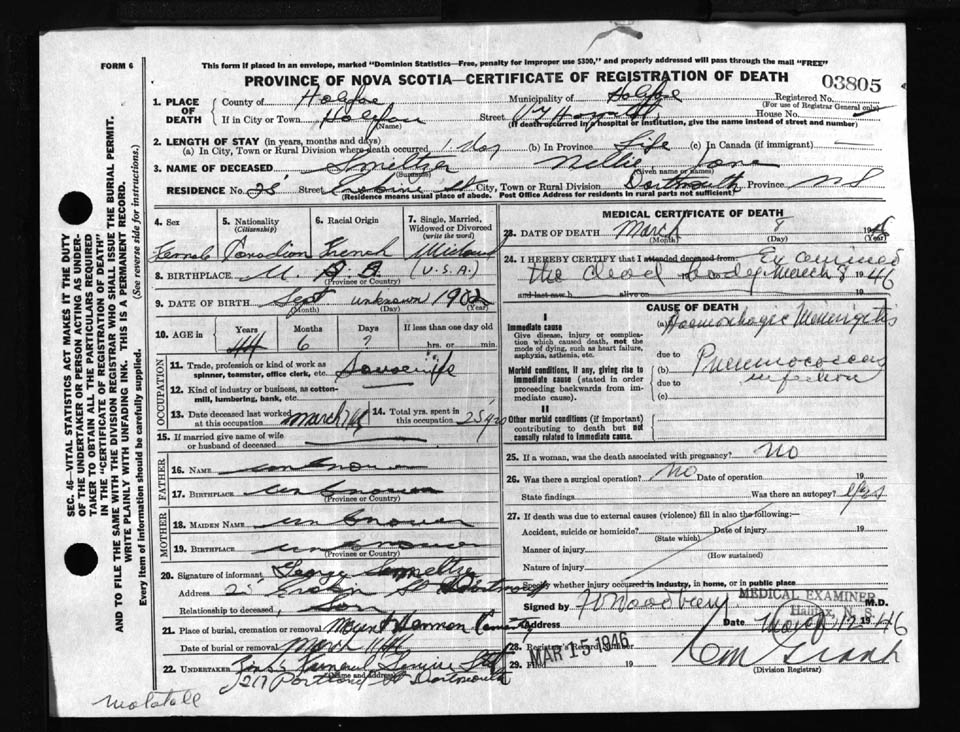 FORM 6
This form if placed in an envelope, marked "Dominion Statistics—Free, penalty for improper use $300," and properly addressed will pass through the mail "FREE"
PROVINCE OF NOVA SCOTIA—CERTIFICATE OF REGISTRATION OF DEATH
03805
1. PLACE OF DEATH
County of Halifax Municipality of Halifax Registered No.
(For use of Registrar General only)
If in City or Town Halifax Street V G Hospital House No.
(Name) (If death occurred in a hospital or institution, give the name instead of street and number)
2. LENGTH OF STAY (in years, months and days)
(a) In City, Town or Rural Division where death occurred 1 day (b) In Province Life (c) In Canada (if immigrant) —
3. NAME OF DECEASED Smeltzer Nellie Jane
(Surname) (Given name or names)
RESIDENCE No. 25 Street City, Town or Rural Division Dartmouth Province N S
(Residence means usual place of abode. Post Office Address for residents in rural parts not sufficient)
4. Sex
5. Nationality (Citizenship)
6. Racial Origin
7. Single, Married, Widowed or Divorced (write the word)
Female Canadian French Widow
8. BIRTHPLACE U. S. A. (U.S.A.)
9. DATE OF BIRTH Sept unknown 1902
(Month) (Day) (Year)
10. AGE in Years Months Days If less than one day old
44 6 ? hrs. or min.
OCCUPATION
11. Trade, profession or kind of work as spinner, teamster, office clerk, etc. Housewife
12. Kind of industry or business, as cotton-mill, lumbering, bank, etc.
13. Date deceased last worked at this occupation March 7/46
14. Total yrs. spent in this occupation 25 yrs
15. If married give name of wife or husband of deceased
FATHER
16. NAME unknown
17. BIRTHPLACE unknown
(Province or Country)
MOTHER
18. MAIDEN NAME unknown
19. BIRTHPLACE unknown
(Province or Country)
20. Signature of informant George Smeltzer
Address St Dartmouth
Relationship to deceased Son
21. Place of burial, cremation or removal Mount Hermon Cemetery
Date of burial or removal March
22. UNDERTAKER Funeral Service Ltd
(Name and Address)
217 Portland St Dartmouth
MEDICAL CERTIFICATE OF DEATH
23. DATE OF DEATH March 8 1946
(Month) (Day) (Year)
24. I HEREBY CERTIFY that I attended deceased from: Examined
the dead body March 8 1946
and last saw h alive on 19
CAUSE OF DEATH
I
Immediate cause
Give disease, injury or complication which caused death, not the mode of dying, such as heart failure, asphyxia, asthenia, etc.
(a) Haemorrhagic Meningitis
due to
Morbid conditions, if any, giving rise to immediate cause (stated in order proceeding backwards from immediate cause).
(b) Pneumococcus
due to infection
(c)
II
Other morbid conditions (if important) contributing to death but not causally related to immediate cause.
25. If a woman, was the death associated with pregnancy? No
26. Was there a surgical operation? No Date of operation 19
State findings Was there an autopsy? Yes
27. If death was due to external causes (violence) fill in also the following:—
Accident, suicide or homicide? Date of injury 19
(State which)
Manner of injury
(How sustained)
Nature of injury
Specify whether injury occured in industry, in home, or in public place
MEDICAL EXAMINER
Halifax, N. S.
Signed by Woodbury M.D.
Address Date 12 1946
28. Registrar's Record Number
29. Filed 19
MAR 15 1946
(Division Registrar)
SEC. 46—VITAL STATISTICS ACT MAKES IT THE DUTY OF THE UNDERTAKER OR PERSON ACTING AS UNDERTAKER TO OBTAIN ALL THE PARTICULARS REQUIRED IN THE "CERTIFICATE OF REGISTRATION OF DEATH" AND TO FILE THE SAME WITH THE DIVISION REGISTRAR WHO SHALL ISSUE THE BURIAL PERMIT.
WRITE PLAINLY WITH UNFADING INK. THIS IS A PERMANENT RECORD.
Every item of information should be carefully supplied. (See reverse side for instructions.)